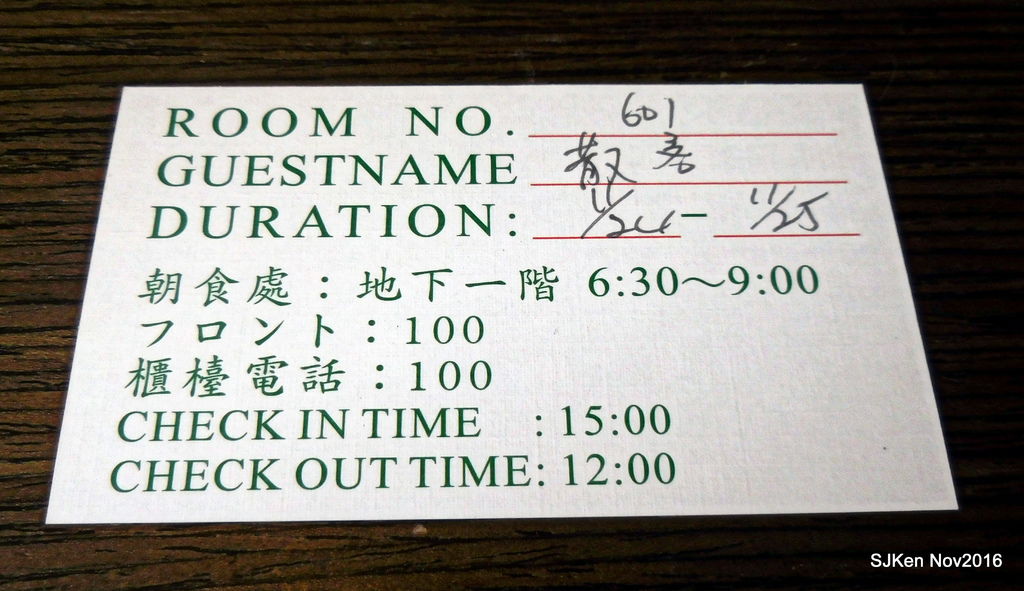 ROOM NO. 601
GUESTNAME 散客
DURATION: 11/24 - 11/25
朝食處：地下一階 6:30～9:00
フロント：100
櫃檯電話：100
CHECK IN TIME : 15:00
CHECK OUT TIME: 12:00
SJKen Nov2016